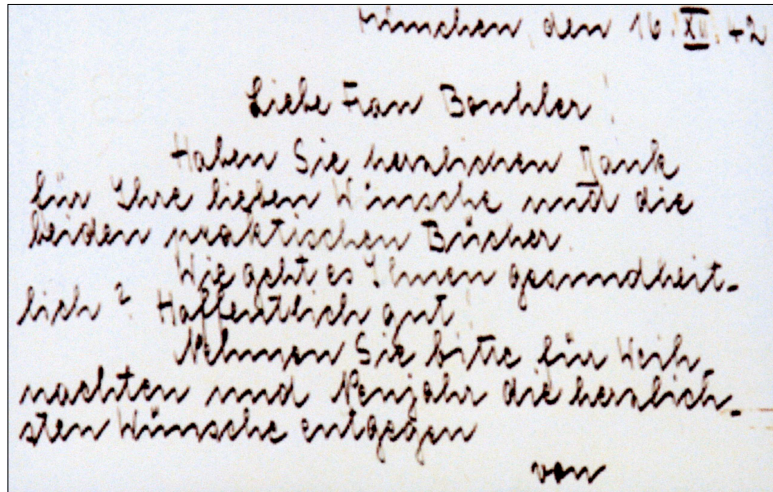 München, den 16. XII. 42
Liebe Frau Bouhler!
Haben Sie herzlichen Dank
für Ihre lieben Wünsche und die
beiden praktischen Bücher.
Wie geht es Ihnen gesundheit-
lich? Hoffentlich gut!
Nehmen Sie bitte für Weih-
nachten und Neujahr die herzlich-
sten Wünsche entgegen
von